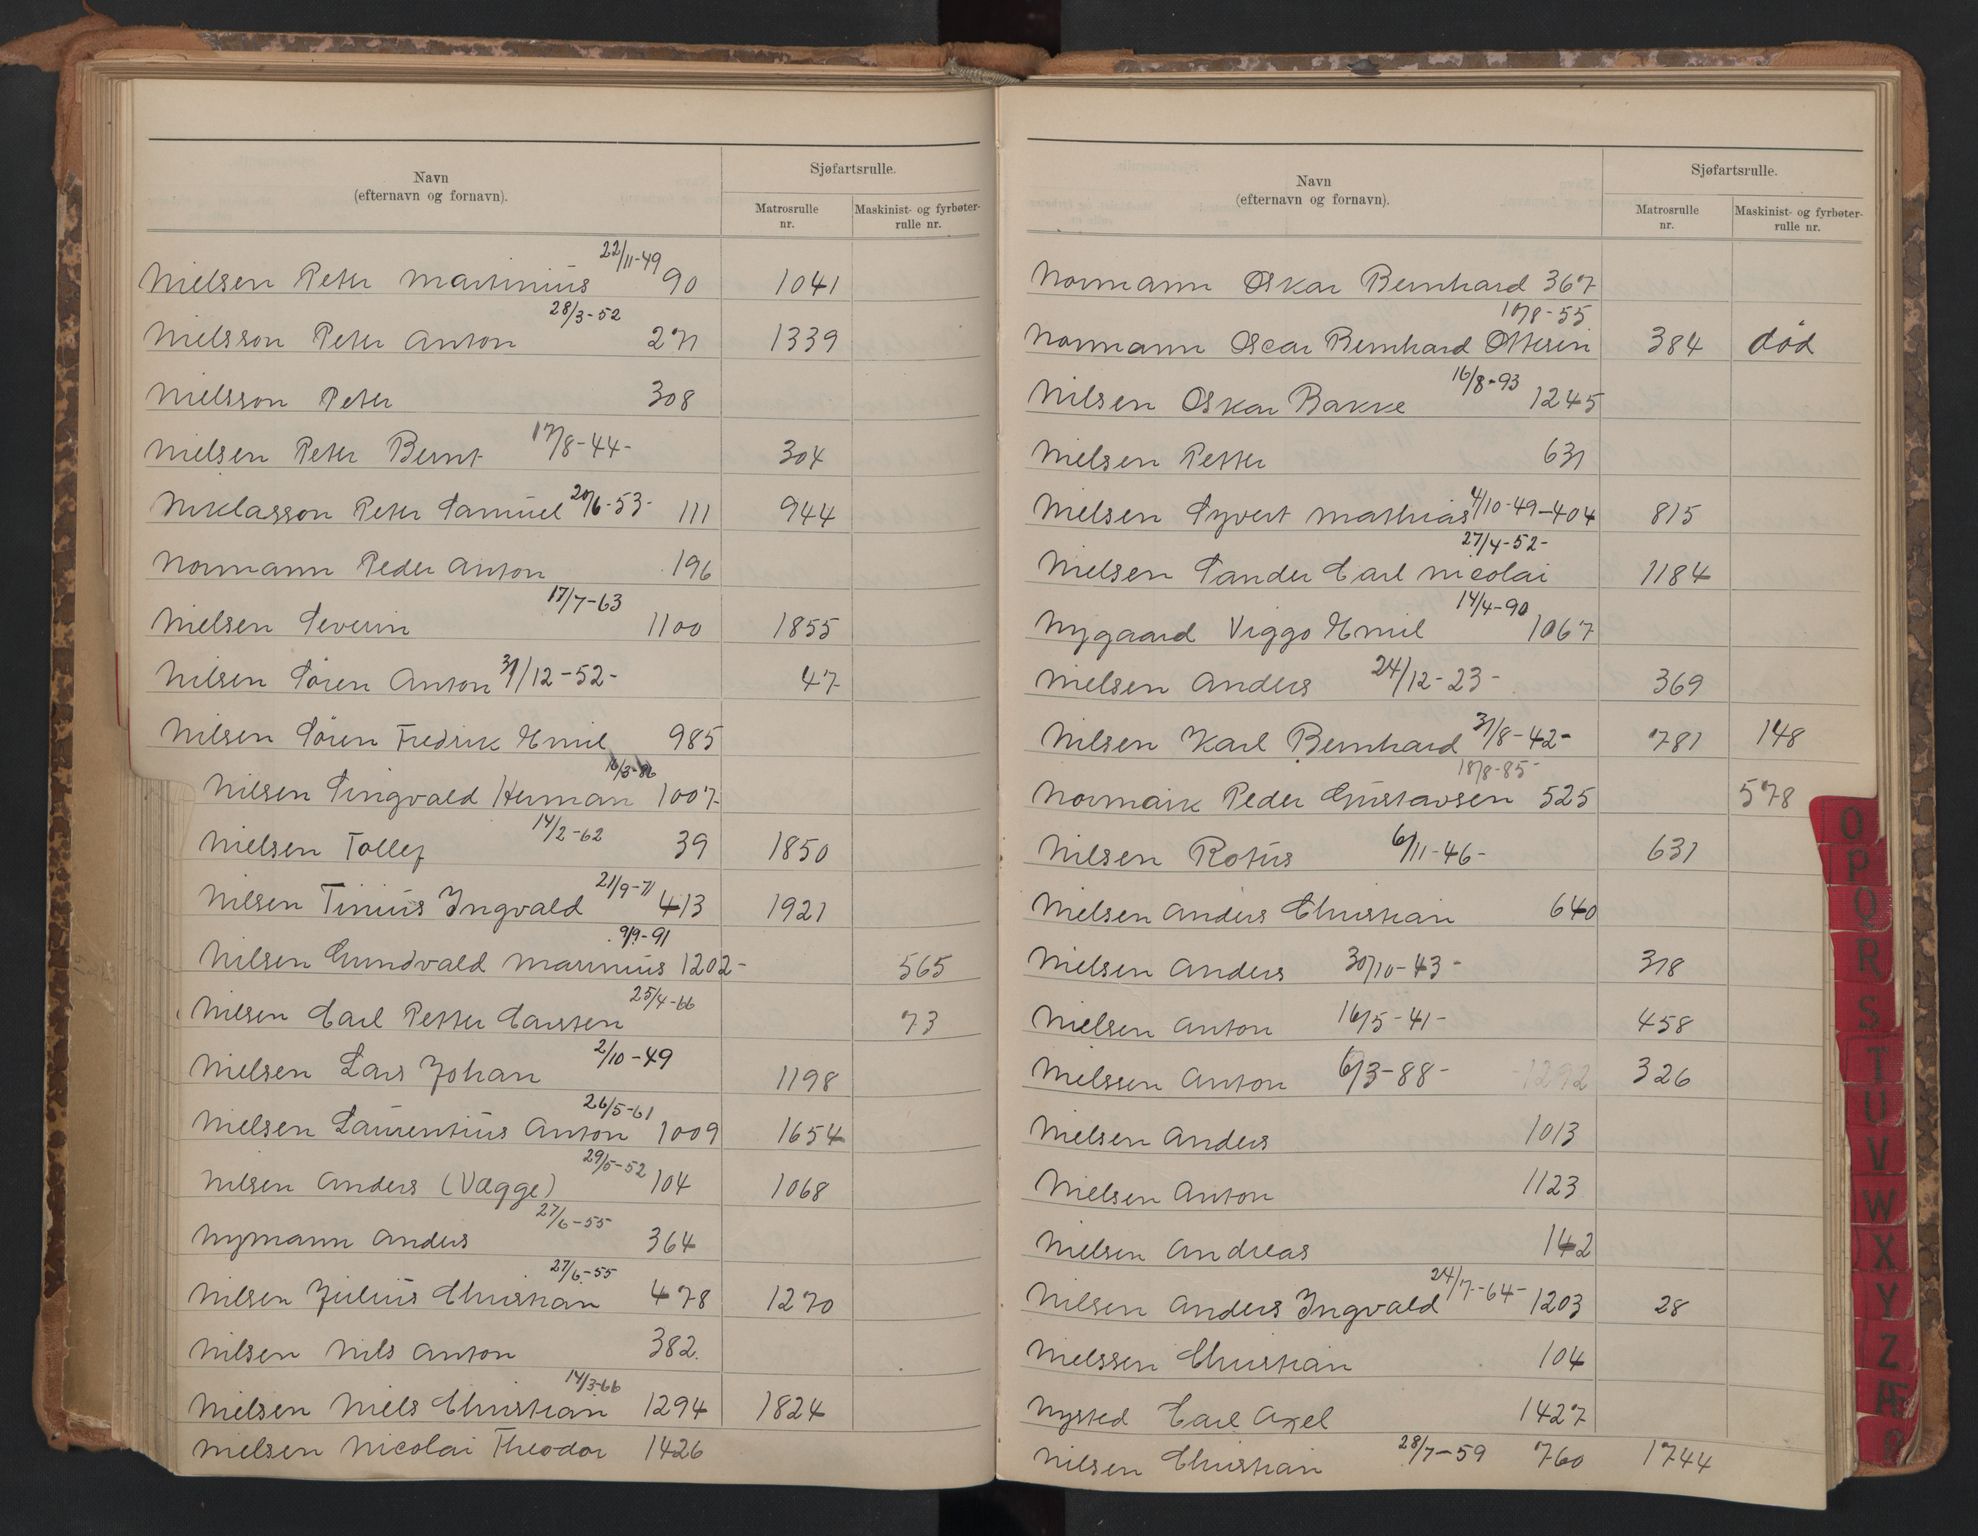 Navn
(efternavn og fornavn).
Sjøfartsrulle.
Matrosrulle nr.
Maskinist- og fyrbøter-rulle nr.
Nielsen Peter Martinius 22/11-49 90 1041
Nielsson Peter Anton 28/3-52 271 1339
Nielsson Peter 308
Nielsen Peter Bernt 17/8-44- 304
Niklasson Peter Samuel 20/6-53- 111 944
Normann Peder Anton 196
Nielsen Severin 17/7-63 1100 1855
Nilsen Søren Anton 31/12-52- 47
Nilsen Søren Fredrik Emil 985
Nilsen Singvald Herman 16/3-86 1007
Nielsen Tollef 14/2-62 39 1850
Nilsen Tinius Ingvald 21/9-71 413 1921
Nilsen Gundvald Marinius 9/9-91 1202- 565
Nilsen Carl Petter Carsten 25/4-66 73
Nielsen Lars Johan 2/10-49 1198
Nielsen Laurentius Anton 26/5-61 1009 1654
Nilsen Anders (Vægge) 29/5-52 104 1068
Nymann Anders 27/6-55 364
Nilsen Julius Christian 27/6-55 478 1270
Nilsen Nils Anton 382.
Nielsen Niels Christian 14/3-66 1294 1824
Nielsen Nicolai Theodor 1426
Navn
(efternavn og fornavn).
Sjøfartsrulle.
Matrosrulle nr.
Maskinist- og fyrbøter-rulle nr.
Normann Oskar Bernhard 367
Normann Oscar Bernhard Ottesen 10/8-55 384 død
Nilsen Oskar Bakke 16/8-93 1245
Nielsen Petter 631
Nielsen Syvert Mathias 4/10-49-404 815
Nielsen Sander Carl Nicolai 27/4-52- 1184
Nygaard Viggo Emil 14/4-90 1067
Nielsen Anders 24/12-23- 369
Nilsen Karl Bernhard 31/8-42- 781 148
Normark Peder Gustavsen 18/8-85- 525 578
Nilsen Rotus 6/11-46- 631
Nielsen Anders Christian 640
Nielsen Anders 30/10-43- 318
Nielsen Anton 16/5-41- 458
Nielssen Anton 6/3-88- -1292 326
Nielsen Anders 1013
Nielsen Anton 1123
Nielsen Andreas 142
Nilsen Anders Ingvald 24/7-64- 1203 28
Nielssen Christian 104
Nysted Carl Axel 1427
Nilsen Christian 28/7-59 760 1744
O
P
Q
R
S
T
U
V
W
X
Y
Z
Æ
Ø